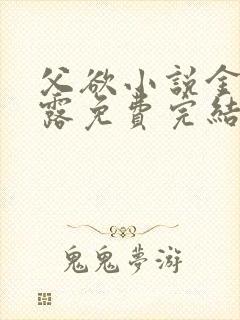 父欲小说金
露免費完結
鬼鬼夢游